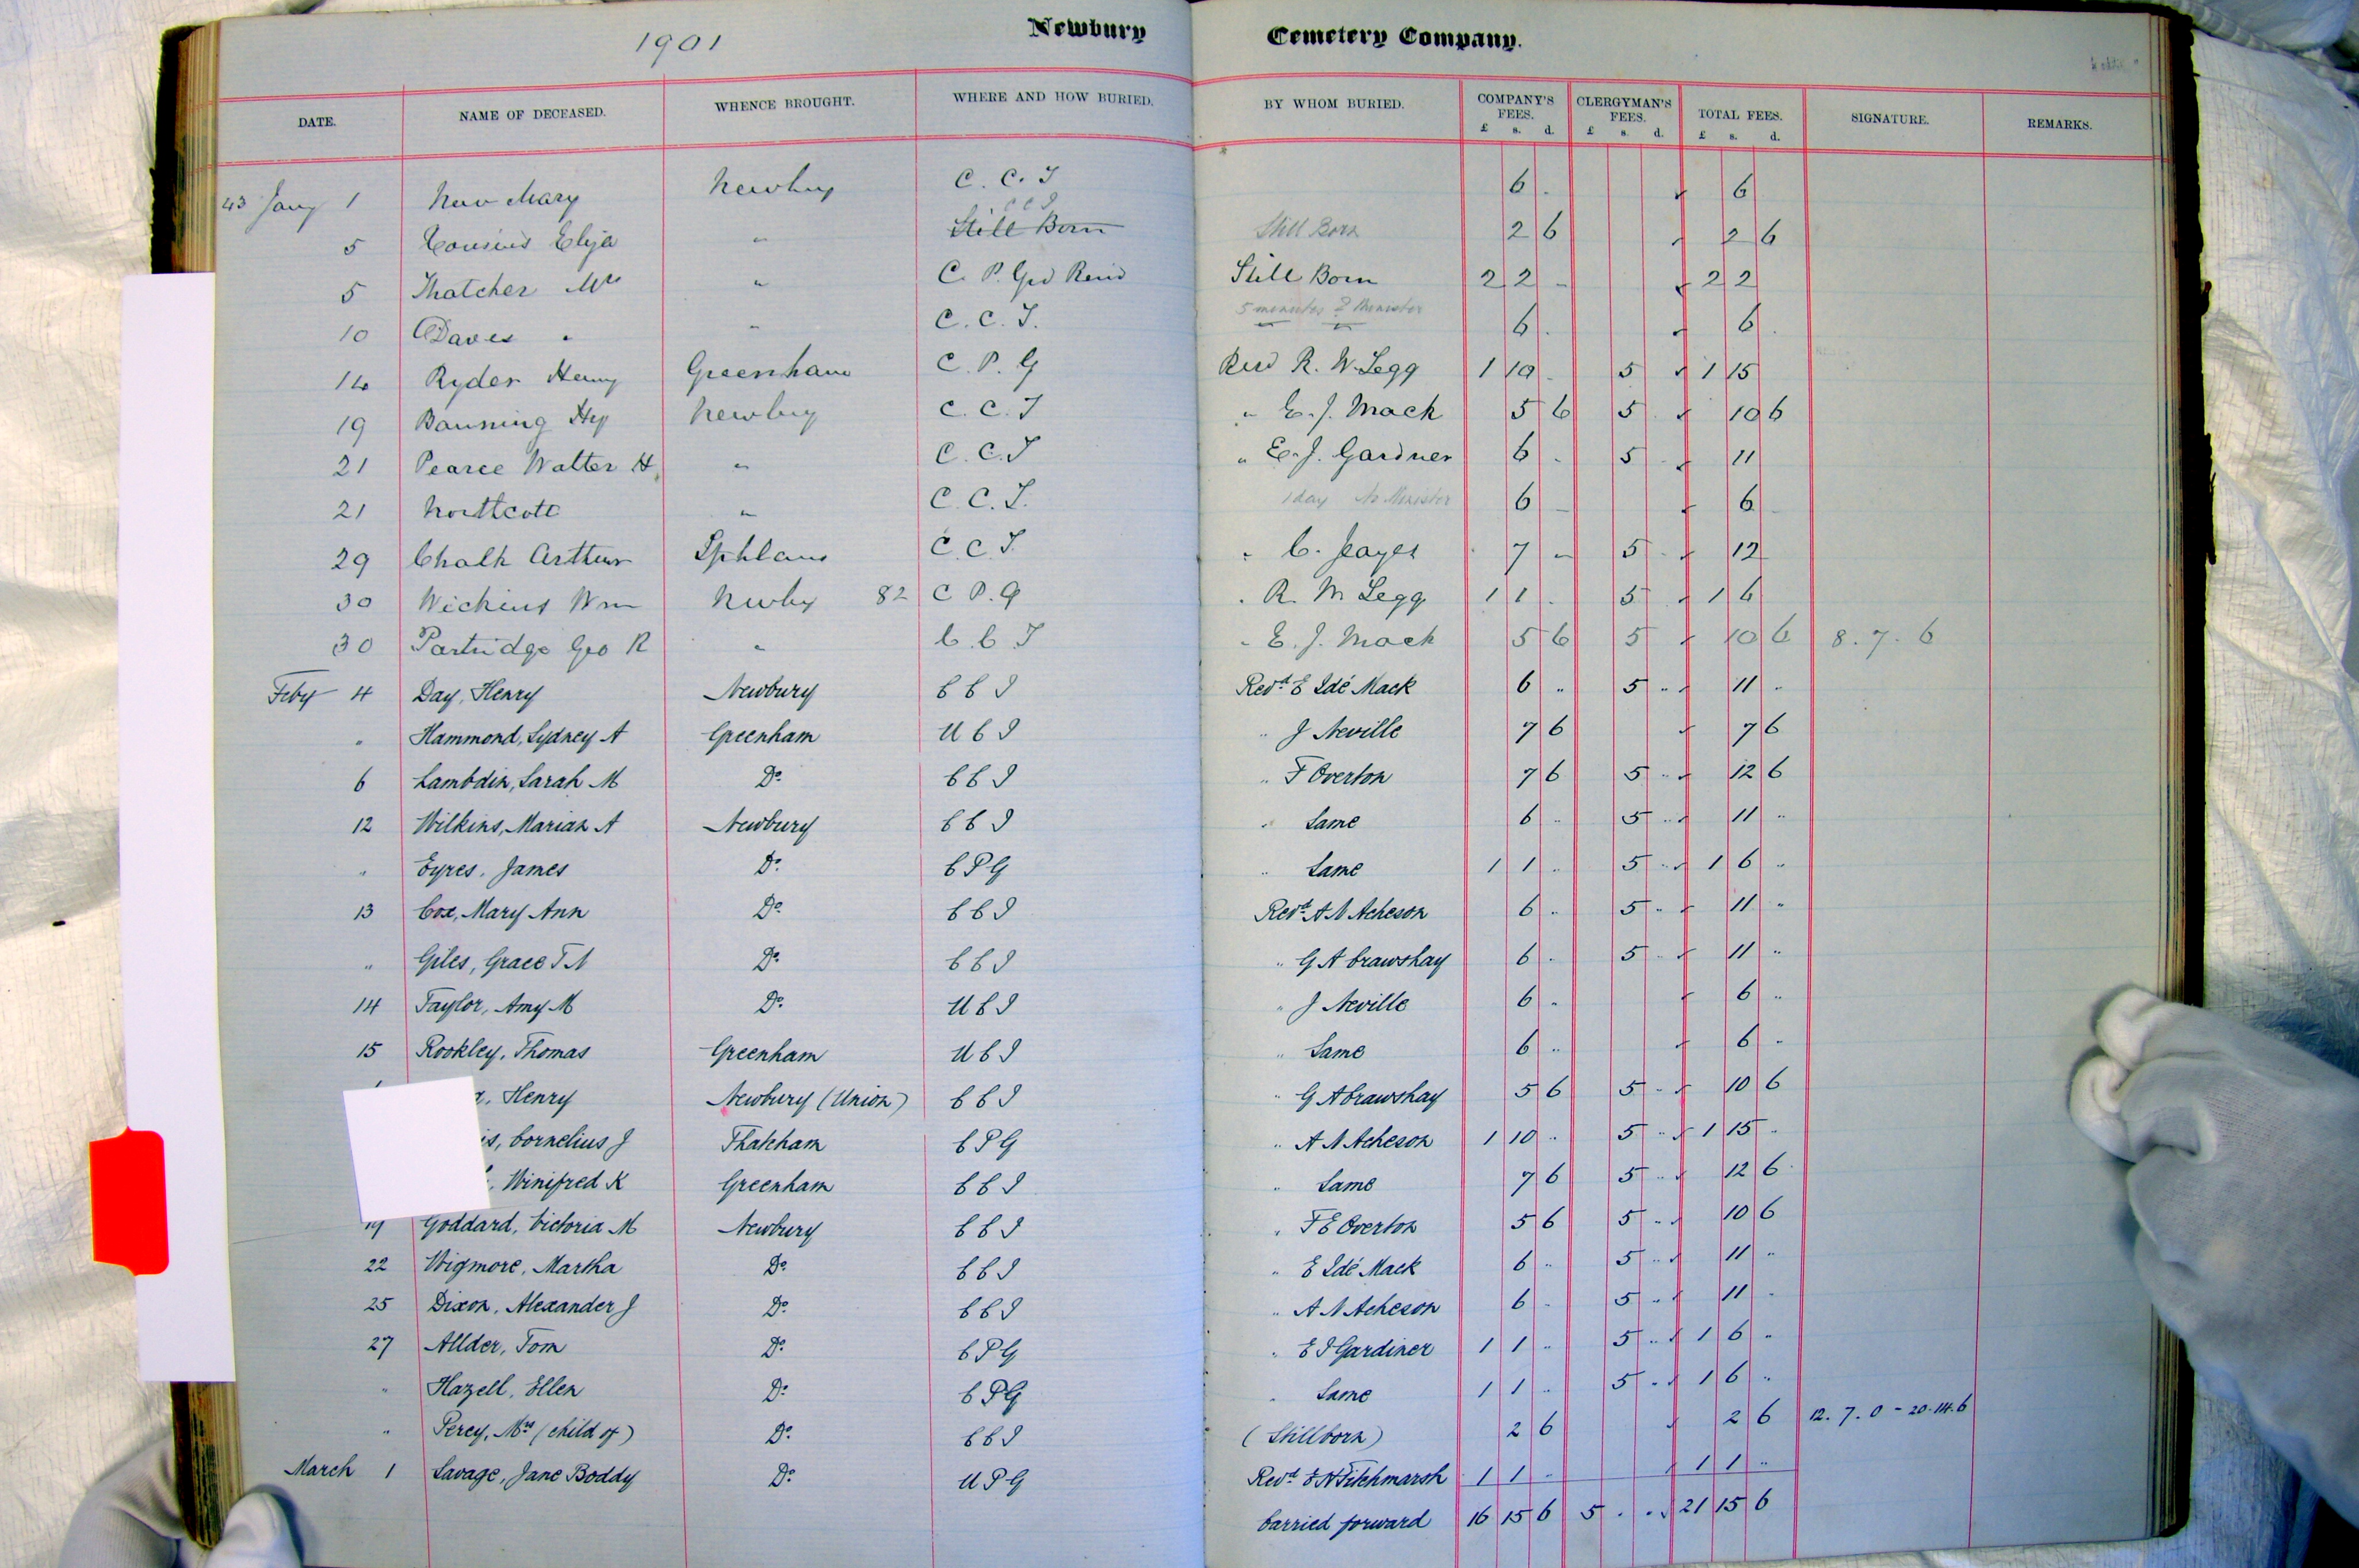 1901 Newbury Cemetery Company.
DATE. NAME OF DECEASED. WHENCE BROUGHT. WHERE AND HOW BURIED. BY WHOM BURIED. COMPANY'S FEES. £ s. d. CLERGYMAN'S FEES. £ s. d. TOTAL FEES. £ s. d. SIGNATURE. REMARKS.
43 Jany 1 Mary Newbury C. C. I 6 - 6
C C I
5 Cousins Eliza " Still Born Still Born 2 6 2 6
5 Thatcher Mrs " C. P. Still Born 2 2 - 2 2
10 Daves " " C. C. I. 5 minutes Minister 6 - 6 -
14 Ryder Henry Greenham C. P. G Revd R. W. Legg 1 10 - 5 1 15
19 Banning Hy Newbury C. C. I " E. J. Mack 5 6 5 - 10 6
21 Pearce Walter H " C. C. I " E. J. Gardner 6 - 5 - 11
21 Northcott " C. C. I. 1 day No Minister 6 - 6 -
29 Chalk Arthur C. C I. " C. 7 - 5 - 12
30 Wickens Wm Newby 82 C P. G " R. M Legg 1 1 - 5 - 1 6
30 Partridge Geo R " C. C I " E. J. Mack 5 6 5 10 6 8. 7. 6
Feby 4 Day, Henry Newbury C C I Revd E Idé Mack 6 " 5 " 11 "
" Hammond, Sydney A Greenham U C I " J Neville 7 6 7 6
6 Lambdin, Sarah M Do C C I " F Overton 7 6 5 " 12 6
12 Wilkins, Marian A Newbury C C I " Same 6 " 5 " 11 "
" Eyres, James Do C P G " Same 1 1 " 5 " 1 6 "
13 Cox, Mary Ann Do C C I Revd A N Acheson 6 " 5 " 11 "
" Giles, Grace T N Do C C I " G A Crawshay 6 " 5 " 11 "
14 Taylor, Amy M Do U C I " J Neville 6 " 6 "
15 Rookley, Thomas Greenham U C I " Same 6 " 6 "
Henry Newbury (Union) C C I " G A Crawshay 5 6 5 " 10 6
is, Cornelius J Thatcham C P G " A N Acheson 1 10 " 5 " 1 15 "
Winifred K Greenham C C I " Same 7 6 5 " 12 6
19 Goddard, Victoria M Newbury C C I " F E Overton 5 6 5 " 10 6
22 Wigmore, Martha Do C C I " E Idé Mack 6 " 5 " 11 "
25 Dixon, Alexander J Do C C I " A N Acheson 6 " 5 " 11 "
27 Allder, Tom Do C P G " E J Gardiner 1 1 " 5 " 1 6 "
" Hazell, Ellen Do C P G " Same 1 1 " 5 " 1 6 "
" Percy, Mrs (child of) Do C C I (Stillborn) 2 6 2 6 12. 7. 0 - 20.14.6
March 1 Savage, Jane Boddy Do U P G Revd E H Titchmarsh 1 1 " 1 1 "
Carried forward 16 15 6 5 " " 21 15 6